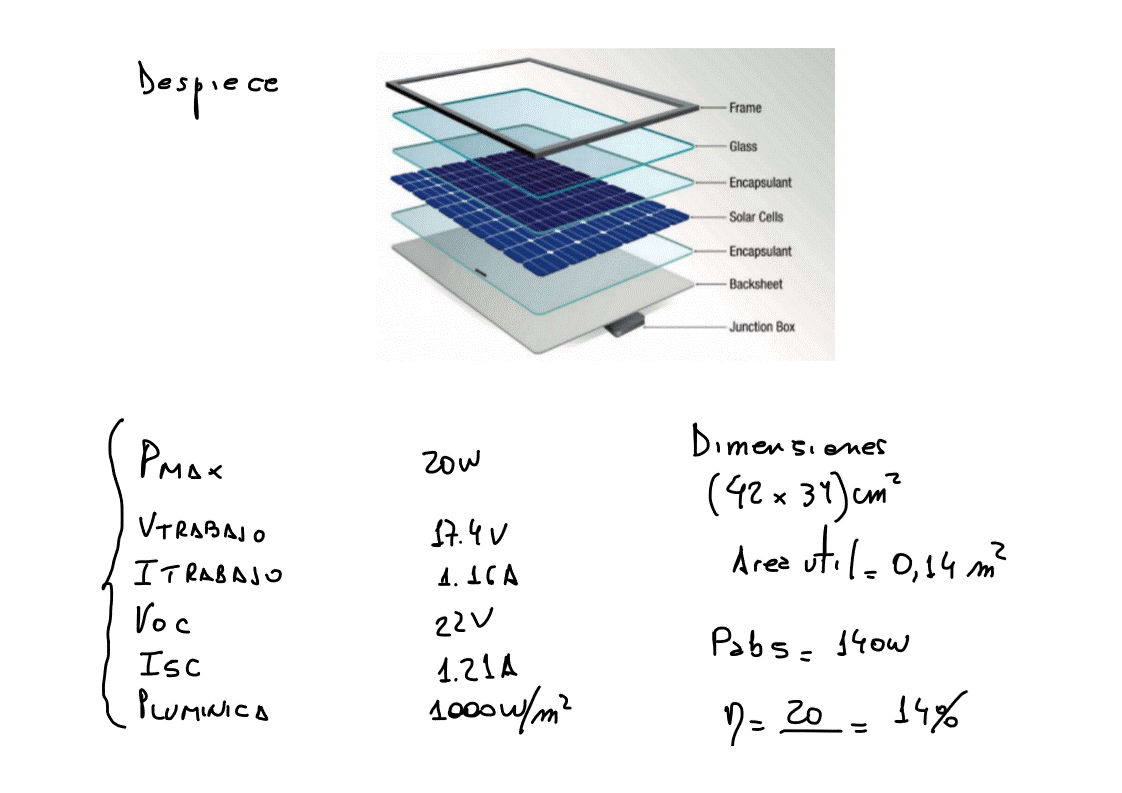 Despiece
Frame
Glass
Encapsulant
Solar Cells
Encapsulant
Backsheet
Junction Box
PMAX 20W
VTRABAJO 17.4V
ITRABAJO 1.16A
VOC 22V
ISC 1.21A
PLUMINICA 1000W/m²
Dimensiones
(42 x 34)cm²
Area util = 0,14 m²
Pabs = 140W
η = 20 = 14%